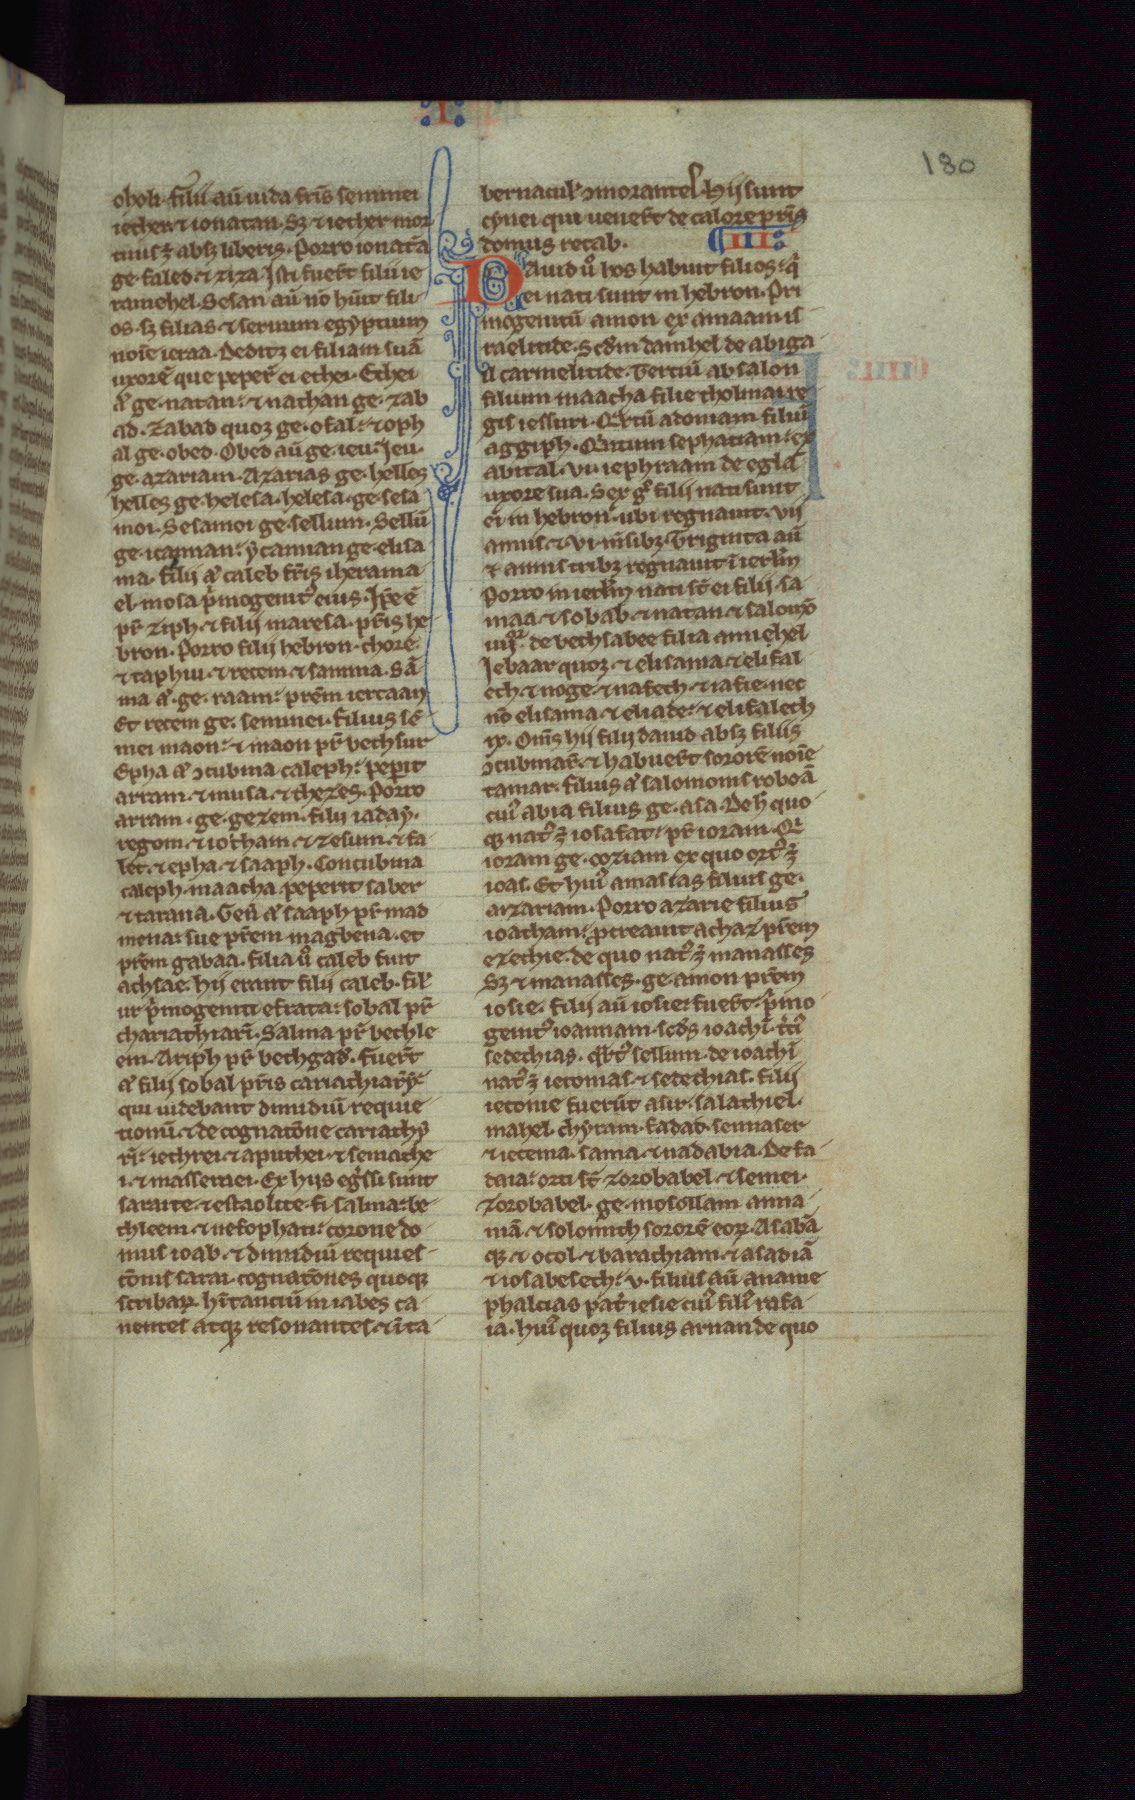 ·I·
180
oholi· filii aū uida fr̄is semmei
iether ⁊ ionatan· Sꝫ ⁊ iether mor
tuus ē absꝫ liberis· Porro ionatā
ge· faled ⁊ ziza Isti fuer̄t filii ie
ramehel· Sesan aū nō hūit fili
os· sꝫ filias ⁊ seruum egyptium
noīe ieraa· Deditqꝫ ei filiam suā
uxorē que pepeī ei ethei· Ethei
aͥ ge· natan: ⁊ nathan ge· zab
ad· Zabad quoqꝫ ge· ofal: ⁊ oph
al ge· obed· Obed aū ge· ieu: Ieu·
ge· azariam· Azarias ge· helles
helles ge· helesa· helesa· ge· sesa
moi· Sesamoi ge· sellum· Sellū
ge· icannan: ycannan ge· elisa
ma· filii aͥ caleb fr̄is iherama
el· mosa pͥmogenitꝰ eius· Ip̄e ē
pr̄ ziph· ⁊ filii maresa· pr̄is he
bron· Porro filii hebron· chore·
⁊ taphiu· ⁊ recem ⁊ samma· Sā
ma aͥ· ge· raam: pr̄em iercaan
Et recem ge· semmei· filius sē
mei maon: ⁊ maon pr̄ bethsur
Epha aͥ ꝯcubina caleph: pepit
arram· ⁊ musa· ⁊ thezes· Porro
arram· ge· gezem· filii iaday·
regom· ⁊ iotham· ⁊ zesum· ⁊ fa
let· ⁊ epha· ⁊ saaph· Concubina
caleph· maacha peperit saber
⁊ tarana· Genͣ aͥ saaph pr̄ mad
mena: sue pr̄em magbena· et
pr̄em gabaa· filia u̓ caleb fuit
achsae· hii erant filii caleb· fil̓
ur pͥmogeniti efrata: sobal pr̄
chariathiari̅· Salma pr̄ bethle
em· Ariph pr̄ bethgad̓· fuer̄t
aͥ filii sobal pr̄is cariathiari̅:
qui uidebant dimidiū requie
tionū· ⁊ de cognatōne cariathy
ri̅: iethrei ⁊ aputhei· ⁊ semathe
i· ⁊ masserei· Ex hiis egͥssi sunt
saraite· ⁊ estaolite· fi salma: be
thleem· ⁊ netophati: corone do
mus ioab· ⁊ dimidiū requies
tōnis sarai· cognatōnes quoqꝫ
scribaꝝ hītanciū in iabes ca
nentes atqꝫ resonantes· ⁊ ī ta
bernacul̓ ꝯmorantes· Hii sunt
cynei qui uener̄t de calore pr̄is
domus recab·
III
Dauid u̓ hos habuit filios: qͥ
ei nati sunt in hebron· Pri
mogenitū amon ex amaam is
raelitide· Scd̓m damhel de abiga
il carmelitide· Terciū absalon
filium maacha filie tholmai re
gis iessuri· Qͣrtū adoniam filiū
aggiph· Qͥntum sephatiam: ex
abital· VI· iephraam de egla
uxore sua· Sex gͦ filii nati sunt
ei in hebron· ubi regnauit· vii
annis· ⁊ vi· mīsibꝫ· Triginta aū
⁊ annis tribꝫ regnauit ī ierl̄m
Porro in ierl̄m nati st̄ ei filii· sa
maa ⁊ sobab· ⁊ natan ⁊ salomō
iiii· de bethsabee filia amiehel
Iebaar quoqꝫ· ⁊ elisama· ⁊ elifal
ech· ⁊ noge· ⁊ nafech· ⁊ iafie· nec
nō elisama ⁊ eliade: ⁊ elifalech
ix· Om̄s hii filii dauid absꝫ filiis
ꝯcubinaꝝ· ⁊ habuer̄t sororē noīe
tamar· filius aͥ salomonis roboā
cuiꝰ abia filius ge· asa· De hͦ quo
qꝫ natꝰ ē iosafat: pr̄ ioram· Qͥ
ioram ge· oziam ex quo ortꝰ ē
ioas· Et huiꝰ amasias filius ge·
arzariam· Porro azarie filius
ioatham: ꝓcreauit achaz pr̄em
ezechie· de quo natꝰ ē manasses
Sꝫ ⁊ manasses· ge· amon pr̄em
iosie· filii aū iosie: fuer̄t· pͥmo
genitꝰ ioannam· scd̓s ioachī· tc̓iꝰ
sedechias· qͣrtꝰ sellum· de ioachī
natꝰ ē ieconias· ⁊ sedechias· filii
ieconie fuerūt asir· salathiel·
mahel· chyram· fadad· sennaser
⁊ iecema· sama· ⁊ nadabia· De fa
daia: orti st̄ zorobabel· ⁊ semei·
Zorobabel· ge· mosollam anna
niā ⁊ solomith sororē eoꝝ· Asabā
qꝫ ⁊ ocol· ⁊ barachiam· ⁊ asadiā
⁊ iosabesech: v· filius aū ananie
phalcias pat̓ iesie cuiꝰ filiꝰ rafa
ia· huiꝰ quoqꝫ filius arnan de quo